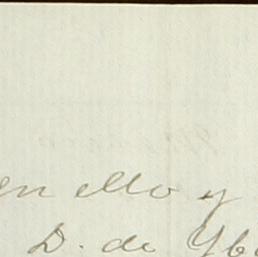 en ello y
D. de Yb